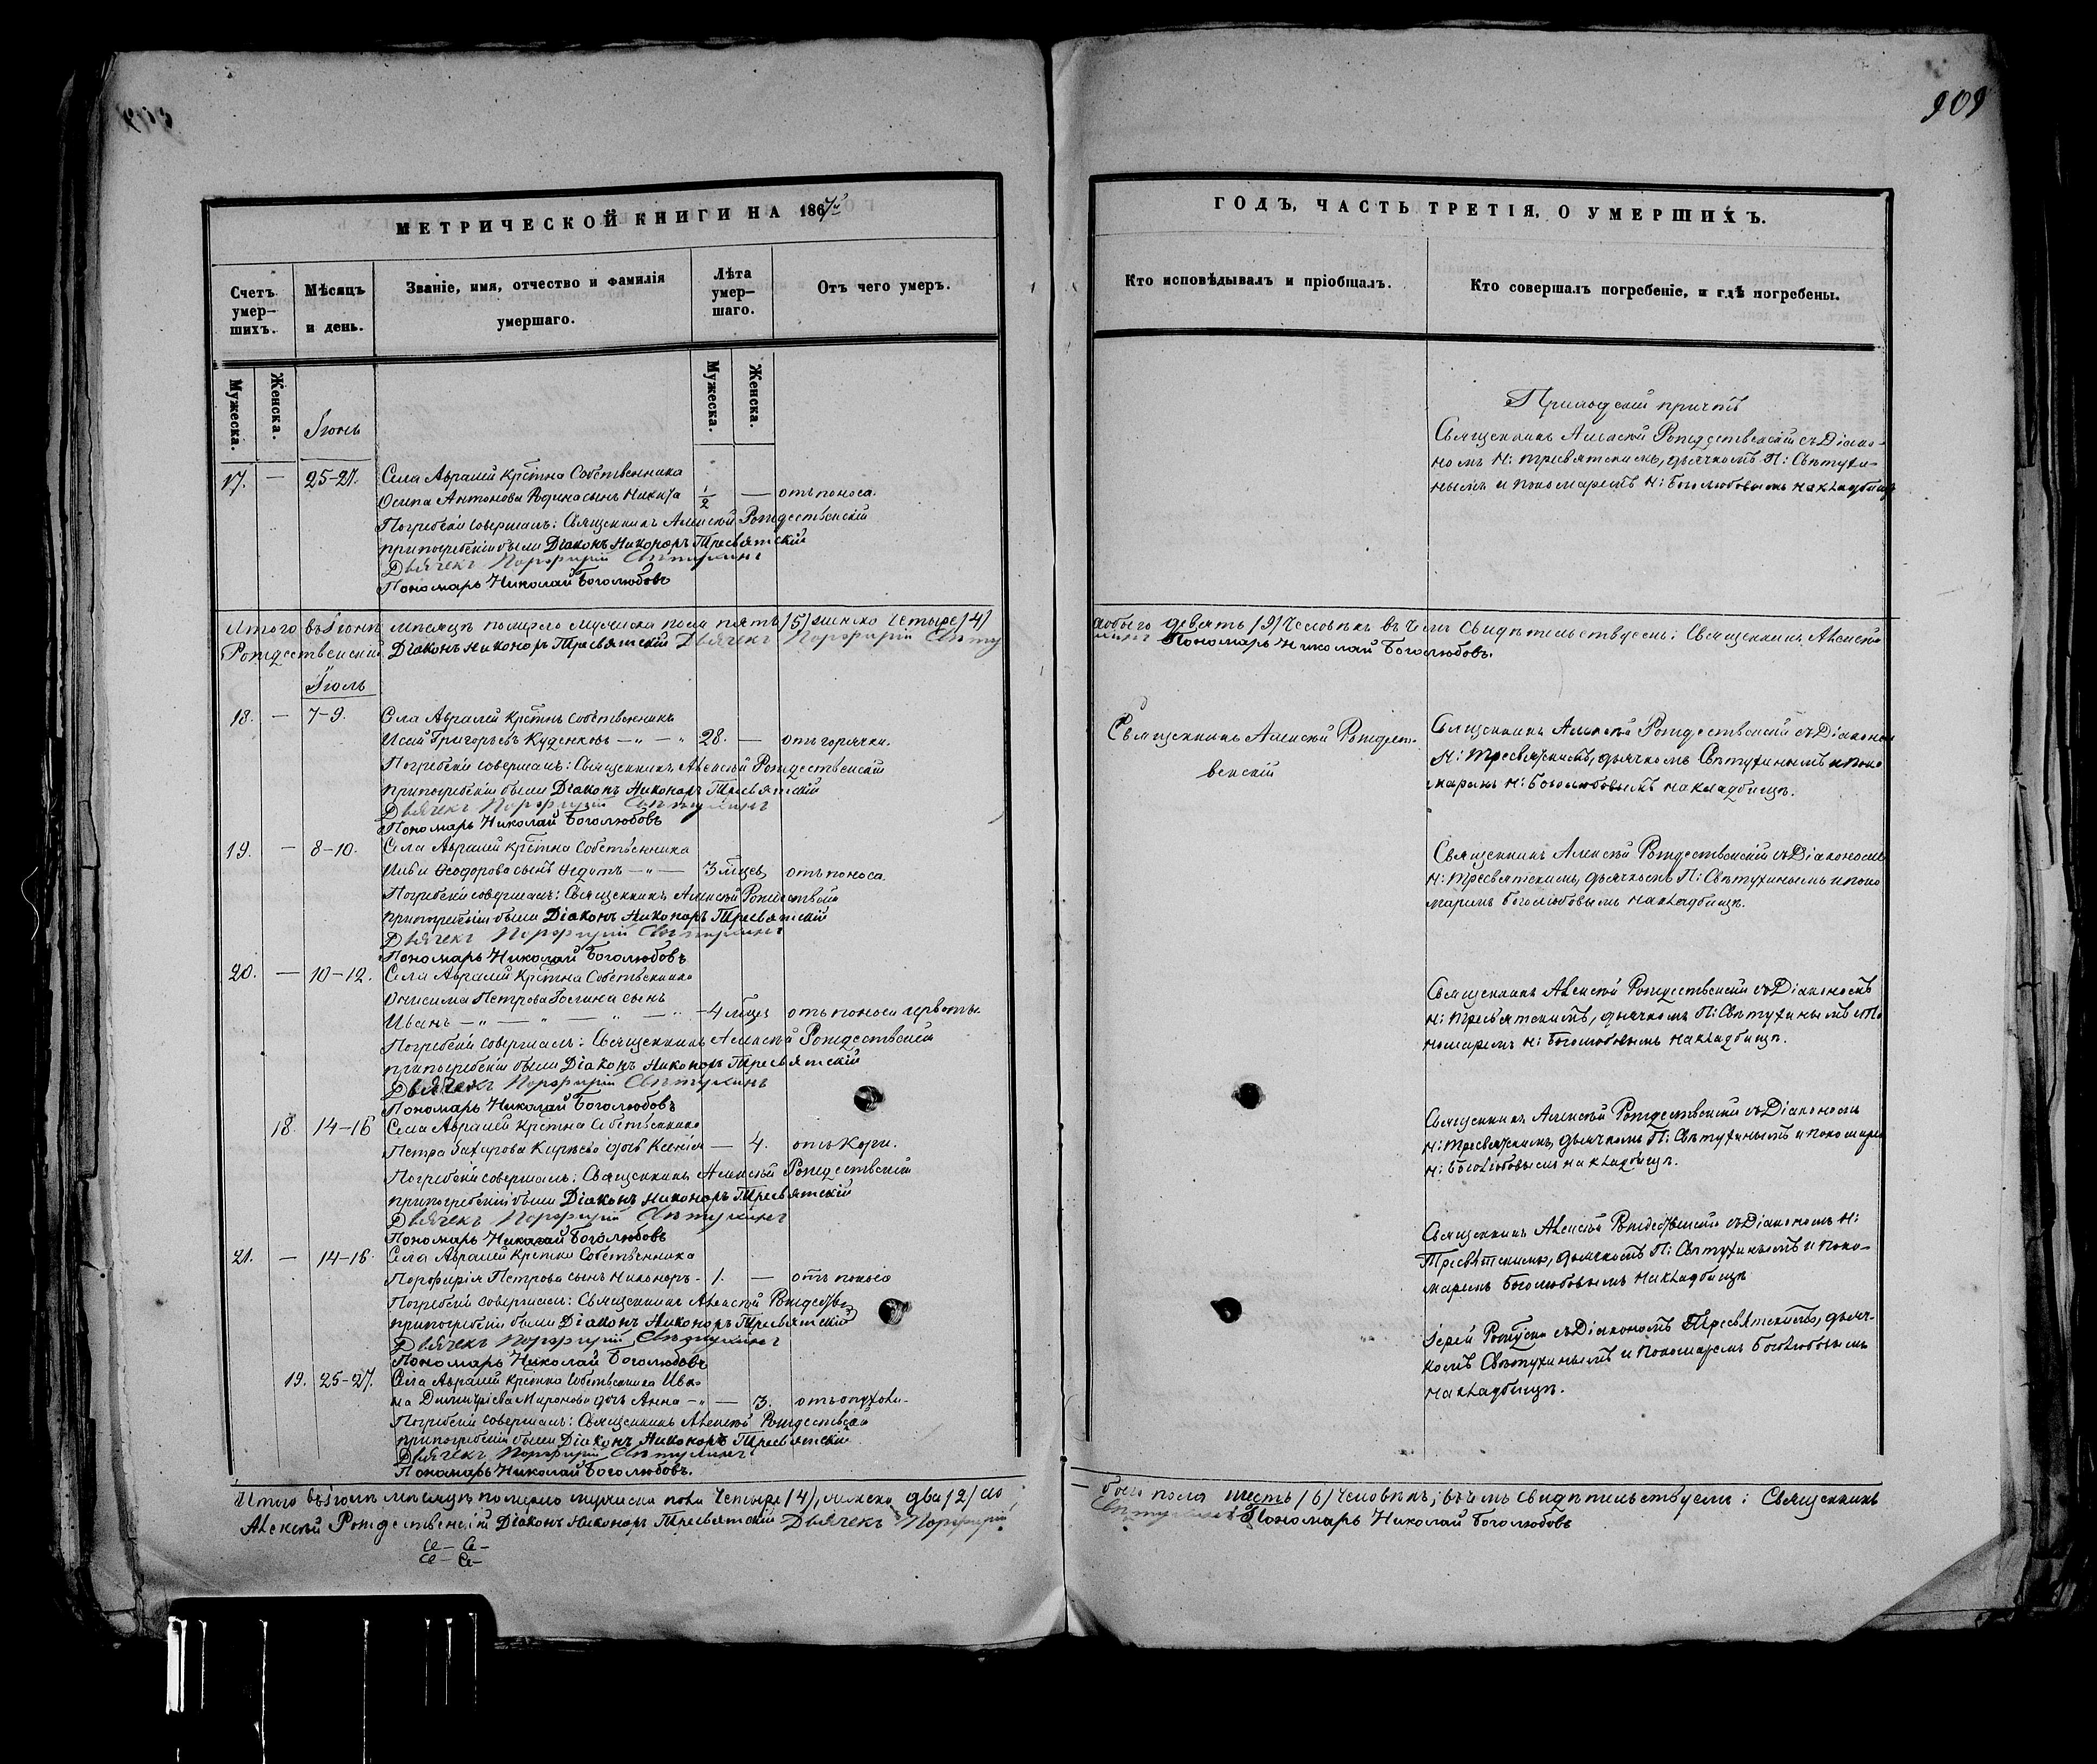 909
МЕТРИЧЕСКОЙ КНИГИ НА 1867й
Счетъ умер-шихъ.
Мѣсяцъ и день.
Званіе, имя, отчество и фамилія умершаго.
Лѣта умер-шаго.
Отъ чего умеръ.
Мужеска.
Женска.
Мужеска.
Женска.
Іюнь
17. — 25-27. Села Авралей Крестна Собственника
Осипа Антонова Родина сынъ Никита 1/2 — отъ поноса.
Погребеніе совершалъ: Священникъ Алексѣй Рождественскій
при погребеніи были Діаконъ Никоноръ Тресвятскій
Дьячекъ Порфирій Свѣтухинъ
Пономарь Николай Боголюбовъ
Итого въ Іюнѣ мѣсяцѣ померло мужеска пола пять /5/ женско четыре /4/
Рождественскій Діаконъ Никоноръ Тресвятскій Дьячекъ Порфирій Свѣту
Іюль
18. — 7-9. Села Авралей Крестнъ собственникъ
Исай Григорьевъ Куденковъ — „ — „ 28. — отъ горячки.
Погребеніе совершалъ: Священникъ Алексѣй Рождественскій
при погребеніи были Діаконъ Никоноръ Тресвятскій
Дьячекъ Порфирій Свѣтухинъ
Пономарь Николай Боголюбовъ
19. — 8-10. Села Авралей Крестна Собственника
Ѳеодорова сынъ Ѳедотъ — „ — 3 мцев отъ поноса
Погребеніе совершалъ: Священникъ Алексѣй
при погребеніи были Діаконъ Никоноръ Тресвятскій
Дьячекъ Порфирій Свѣтухинъ
Пономарь Николай Боголюбовъ
20. — 10-12. Села Авралей Крестна Собственника
Онисима Петрова сынъ
Иванъ — „ — „ — „ — „ 4 мцев отъ поноса
Погребеніе совершалъ: Священникъ Алексѣй Рождественскій
при погребеніи были Діаконъ Никоноръ Тресвятскій
Дьячекъ Порфирій Свѣтухинъ
Пономарь Николай Боголюбовъ
18. 14-16 Села Авралей Крестна Собственника
Петра Захарова дочь Ксенія — 4. отъ Кори.
Погребеніе совершалъ: Священникъ Алексѣй Рождествскій
при погребеніи были Діаконъ Никоноръ Тресвятскій
Дьячекъ Порфирій Свѣтухинъ
Пономарь Николай Боголюбовъ
21. — 14-16. Села Авралей Крестна Собственника
Порфирія Петрова сынъ Никоноръ - 1. — отъ поноса
Погребеніе совершалъ: Священникъ Алексѣй
при погребеніи были Діаконъ Никоноръ Тресвятскій
Дьячекъ Порфирій Свѣтухинъ
Пономарь Николай Боголюбовъ
19. 25-27. Села Авралей Крестна Собственника Ива-
на Димитріева Миронова дочь Анна — „ — 3. отъ опухоли.
Погребеніе совершалъ: Священникъ Алексѣй
при погребеніи были Діаконъ Никоноръ Тресвятскій
Дьячекъ Порфирій Свѣтухинъ
Пономарь Николай Боголюбовъ.
Итого въ Іюлѣ мѣсяцѣ померло мужеска пола четыре /4/, женска два /2/ а о
Алексѣй Рождественскій Діаконъ Никоноръ Тресвятскій Дьячекъ Порфирій
ГОДЪ, ЧАСТЬ ТРЕТІЯ, О УМЕРШИХЪ.
Кто исповѣдывалъ и пріобщалъ.
Кто совершалъ погребеніе, и гдѣ погребены.
причтъ
Священникъ Алексѣй Рождественскій съ Діако-
номъ Н: Тресвятскимъ, дьячкомъ П: Свѣтухи-
нымъ и пономаремъ Н: Боголюбовымъ на кладбищѣ
а обоего девять /9/ человѣкъ въ чемъ свидѣтельствуемъ: Священникъ Алексѣй
хинъ Пономарь Николай Боголюбовъ.
Священникъ Алексѣй Рождест-
венскій
Священникъ Алексѣй Рождественскій съ Діакономъ
Н: Тресвятскимъ, дьячкомъ Свѣтухинымъ и поно
маремъ Н: Боголюбовымъ на кладбищѣ.
Священникъ Алексѣй Рождественскій съ Діакономъ
Н: Тресвятскимъ, дьячкомъ П: Свѣтухинымъ и поно
маремъ Боголюбовымъ на кладбищѣ.
Священникъ Алексѣй Рождественскій съ Діакономъ
Н: Тресвятскимъ, дьячкомъ П: Свѣтухинымъ и По
номаремъ Н: Боголюбовымъ на кладбищѣ.
Священникъ Алексѣй Рождественскій съ Діакономъ
Н: Тресвятскимъ, дьячкомъ П: Свѣтухинымъ и пономаремъ
Н: Боголюбовымъ на кладбищѣ.
Священникъ Алексѣй Рождественскій съ Діакономъ Н:
Тресвятскимъ, дьячкомъ П: Свѣтухинымъ и поно-
маремъ Боголюбовымъ на кладбищѣ
Іерей съ Діакономъ Тресвятскимъ, дьяч-
комъ Свѣтухинымъ и пономаремъ Боголюбовымъ
на кладбищѣ.
боего пола шесть /6/ человѣкъ; въ чемъ свидѣтельствуемъ: Священникъ
Свѣтухинъ Пономарь Николай Боголюбовъ